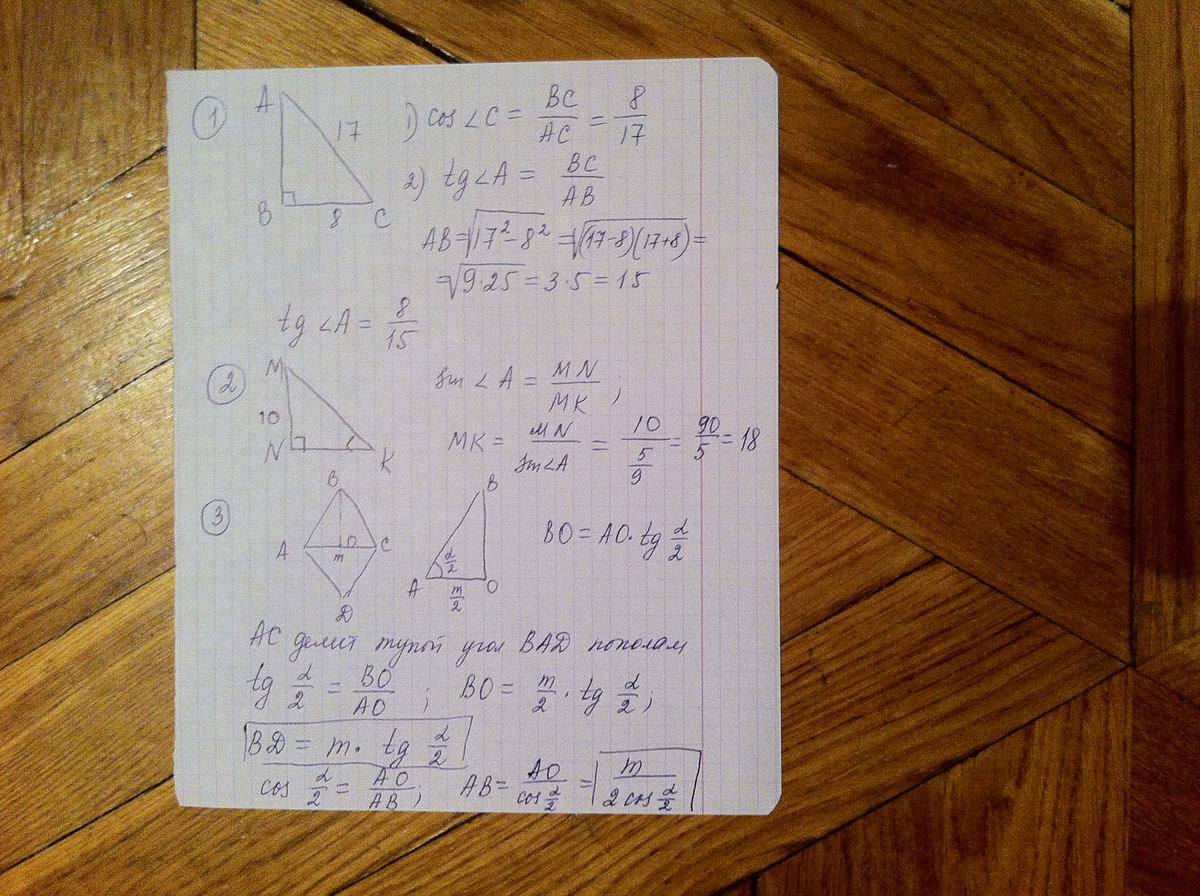 1
A
17
B
8
C
1) cos ∠C = BC/AC = 8/17
2) tg∠A = BC/AB
AB=√(17²-8²) =√((17-8)(17+8)) =
=√(9·25) = 3·5 = 15
tg ∠A = 8/15
2
M
10
N
K
sin ∠A = MN/MK ;
MK = MN/sin∠A = 10/(5/9) = 90/5 = 18
3
B
A
O
C
m
D
B
α/2
A
m/2
O
BO = AO · tg α/2
AC делит тупой угол BAD пополам
tg α/2 = BO/AO ; BO = m/2 · tg α/2 ;
BD = m · tg α/2
cos α/2 = AO/AB ; AB = AO/cos α/2 = m/(2 cos α/2)